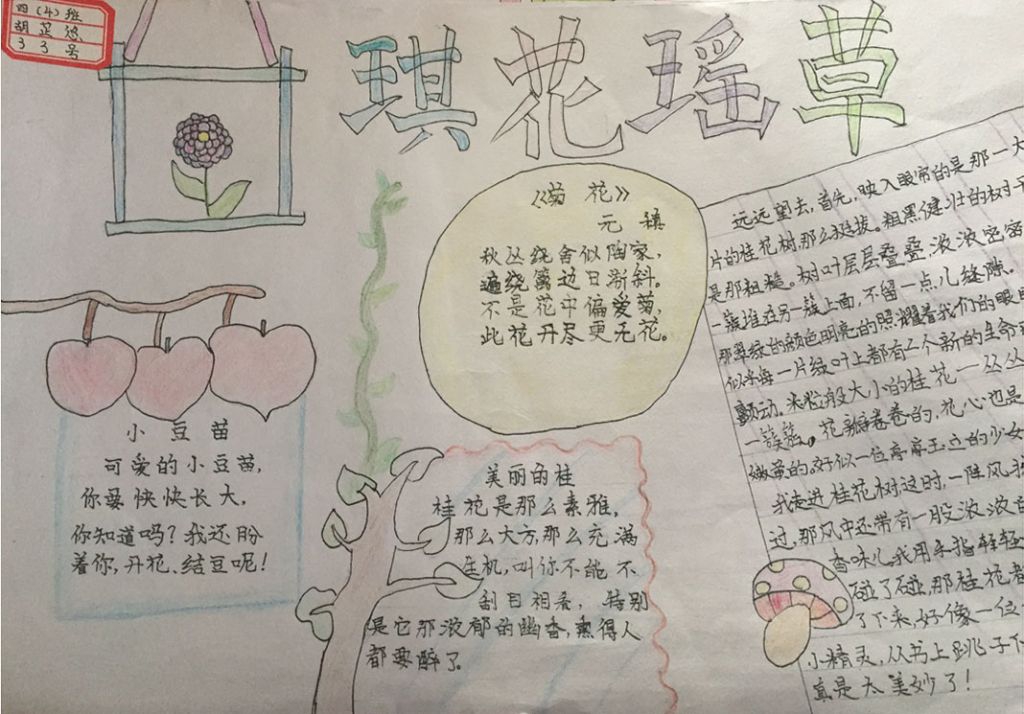 四（4）班
胡芷悠
33号
琪花瑶草
《菊花》
元稹
秋丛绕舍似陶家，
遍绕篱边日渐斜。
不是花中偏爱菊，
此花开尽更无花。
小豆苗
可爱的小豆苗，
你要快快长大，
你知道吗？我还盼
着你，开花、结豆呢！
美丽的桂
桂花是那么素雅，
那么大方，那么充满
生机，叫你不能不
刮目相看，特别
是它那浓郁的幽香，熏得人
都要醉了。
远远望去，首先，映入眼帘的是那一大
片的桂花树，那么挺拔。粗黑健壮的树干
是那粗糙。树叶层层叠叠，浓浓密密
一簇堆在另一簇上面，不留一点儿缝隙。
那翠绿的颜色明亮的照耀着我们的眼睛
似乎每一片绿叶上都有一个新的生命
颤动。米粒般大小的桂花一丛丛
一簇簇。花瓣卷卷的，花心也是
嫩黄的，好似一位亭亭玉立的少女
我走进桂花树，这时，一阵风
过，那风中还带有一股浓浓
香味儿。我用手指轻轻
碰了碰，那桂花都
了下来，好像一位
小精灵，从书上跳了下
真是太美妙了！